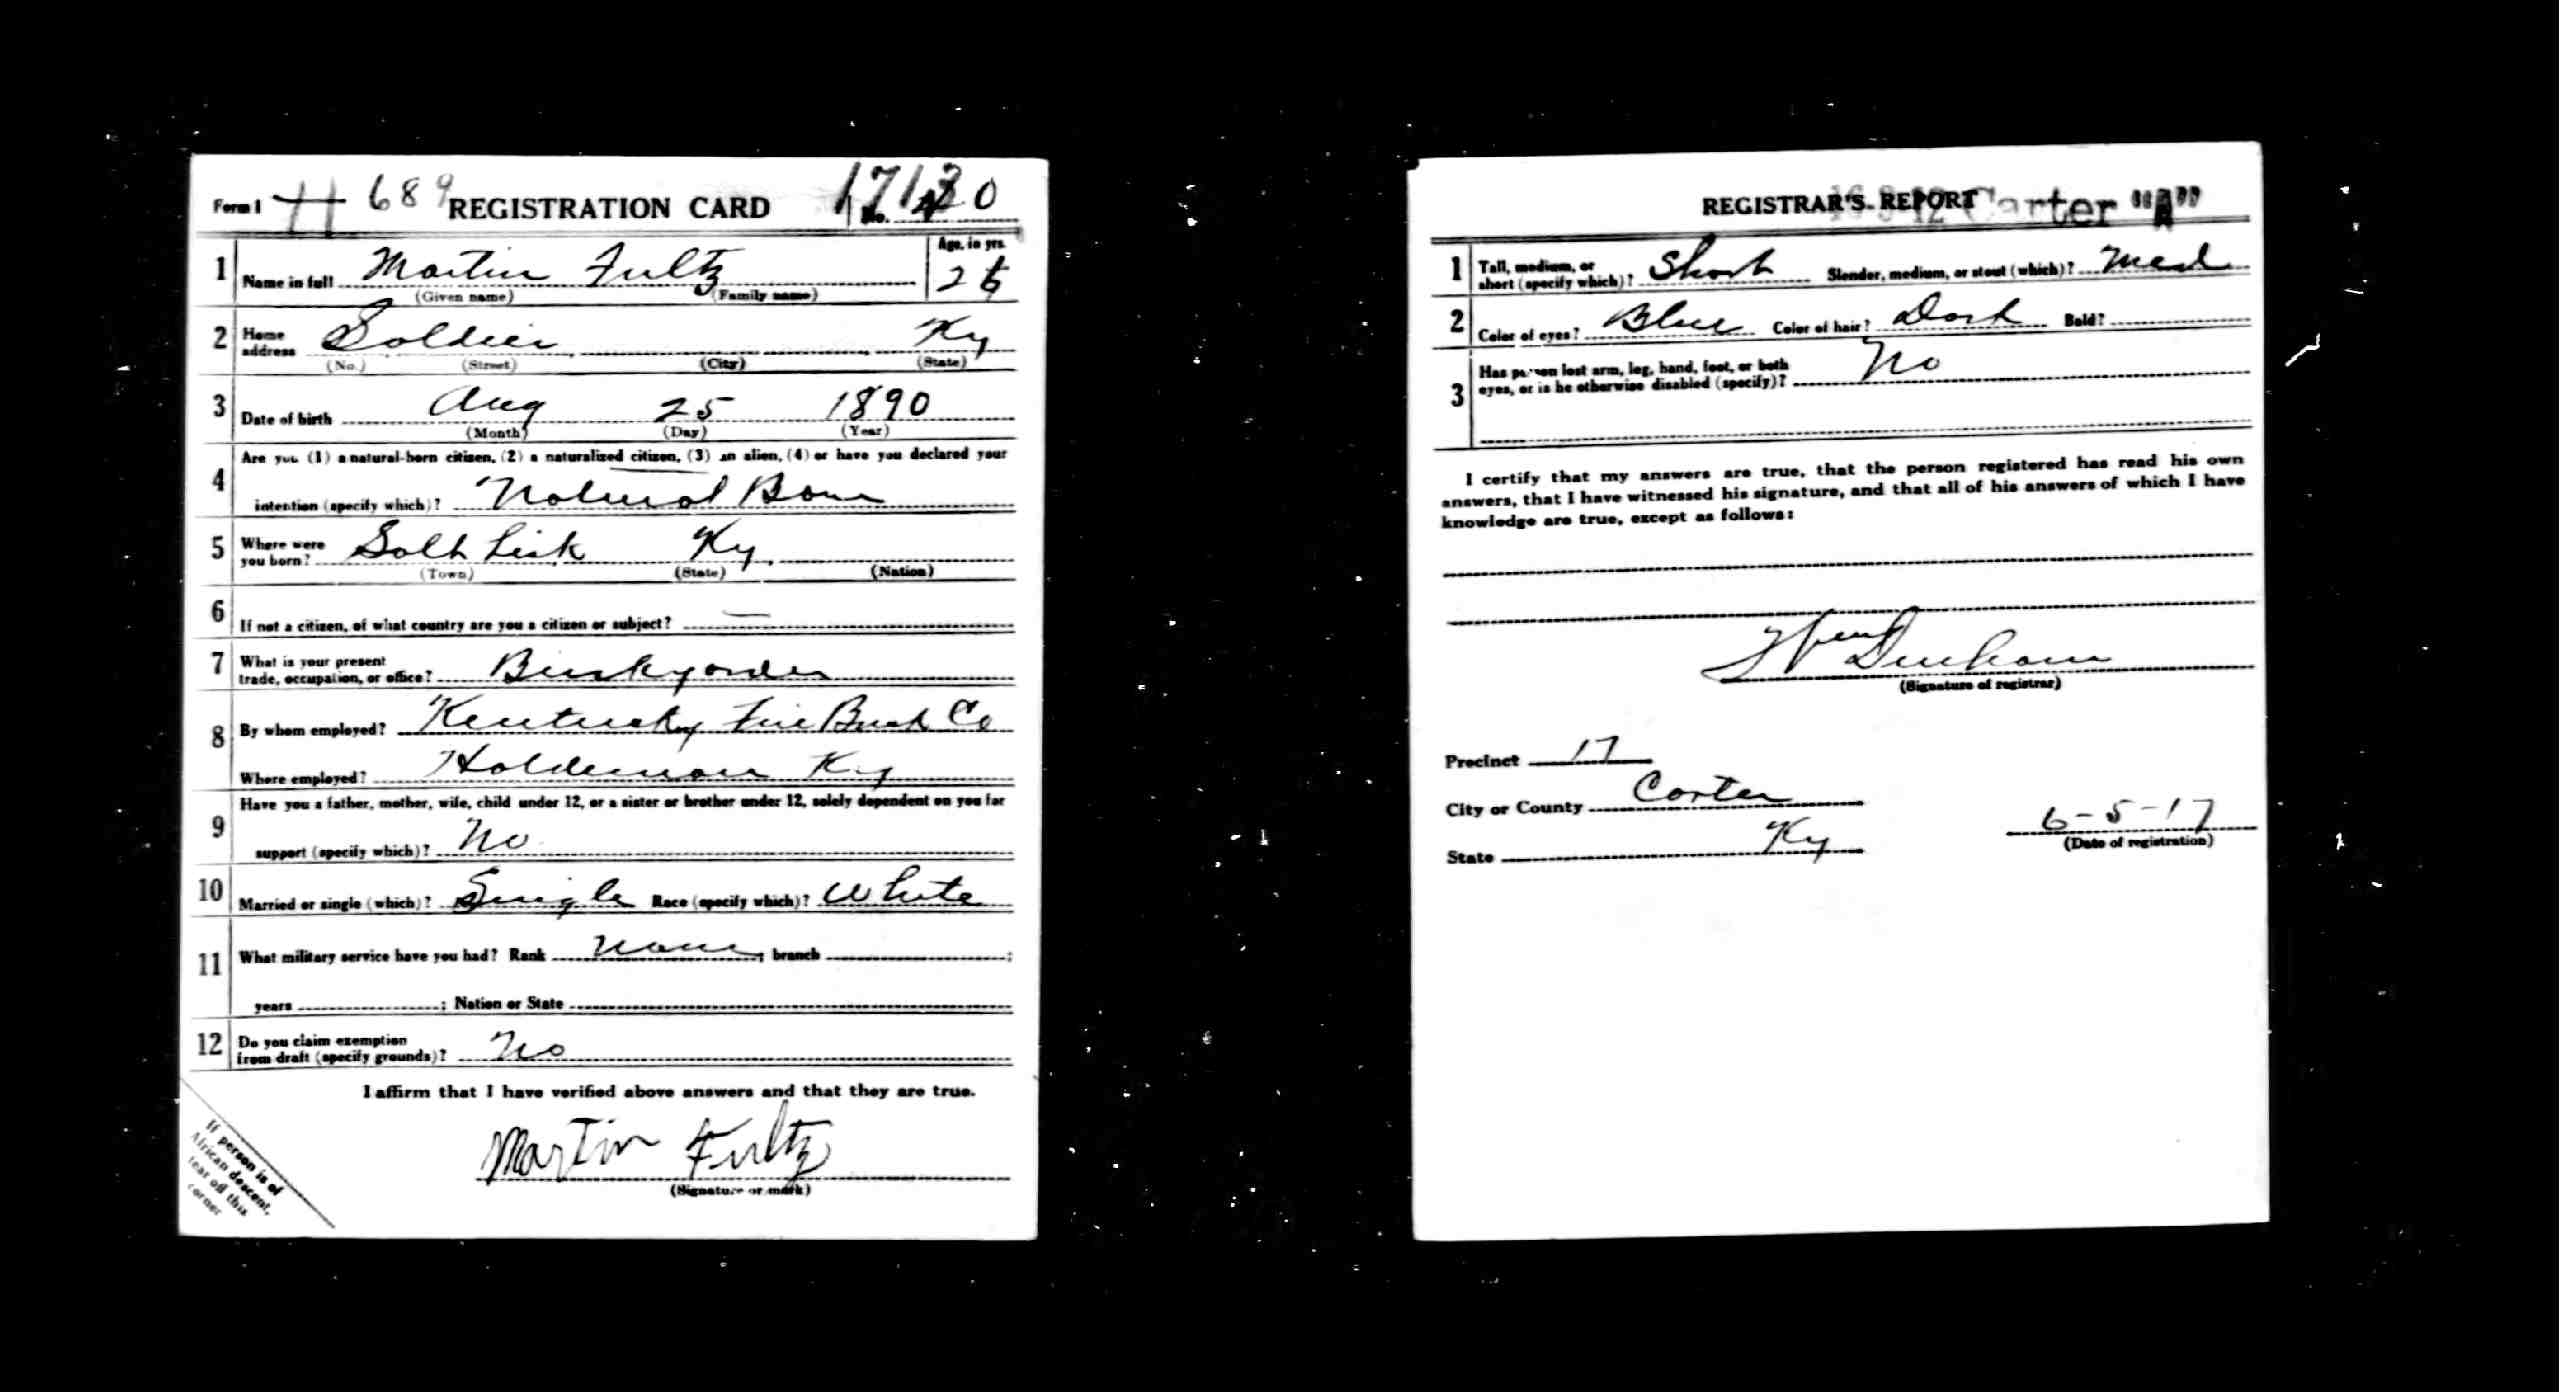 Form 1 H 689 REGISTRATION CARD No.
1 Name in full Martin Fultz Age, in yrs.
(Given name) (Family name) 26
2 Home address Soldier Ky
(No.) (Street) (City) (State)
3 Date of birth Aug 25 1890
(Month) (Day) (Year)
4 Are you (1) a natural-born citizen, (2) a naturalized citizen, (3) an alien, (4) or have you declared your
intention (specify which)? Natural Born
5 Where were you born? Salt Lick Ky
(Town) (State) (Nation)
6 If not a citizen, of what country are you a citizen or subject? —
7 What is your present
trade, occupation, or office? Brickyarder
8 By whom employed? Kentucky Fire Brick Co
Where employed? Haldeman Ky
9 Have you a father, mother, wife, child under 12, or a sister or brother under 12, solely dependent on you for
support (specify which)? No
10 Married or single (which)? Single Race (specify which)? White
11 What military service have you had? Rank None; branch ;
years ; Nation or State
12 Do you claim exemption
from draft (specify grounds)? No
I affirm that I have verified above answers and that they are true.
Martin Fultz
(Signature or mark)
If person is of
African descent,
tear off this
corner
REGISTRAR'S REPORT Carter "A"
1 Tall, medium, or
short (specify which)? Short Slender, medium, or stout (which)? Med
2 Color of eyes? Blue Color of hair? Dark Bald?
3 Has person lost arm, leg, hand, foot, or both
eyes, or is he otherwise disabled (specify)? No
I certify that my answers are true, that the person registered has read his own
answers, that I have witnessed his signature, and that all of his answers of which I have
knowledge are true, except as follows:
Dunham
(Signature of registrar)
Precinct 17
City or County Carter
State Ky
6-5-17
(Date of registration)